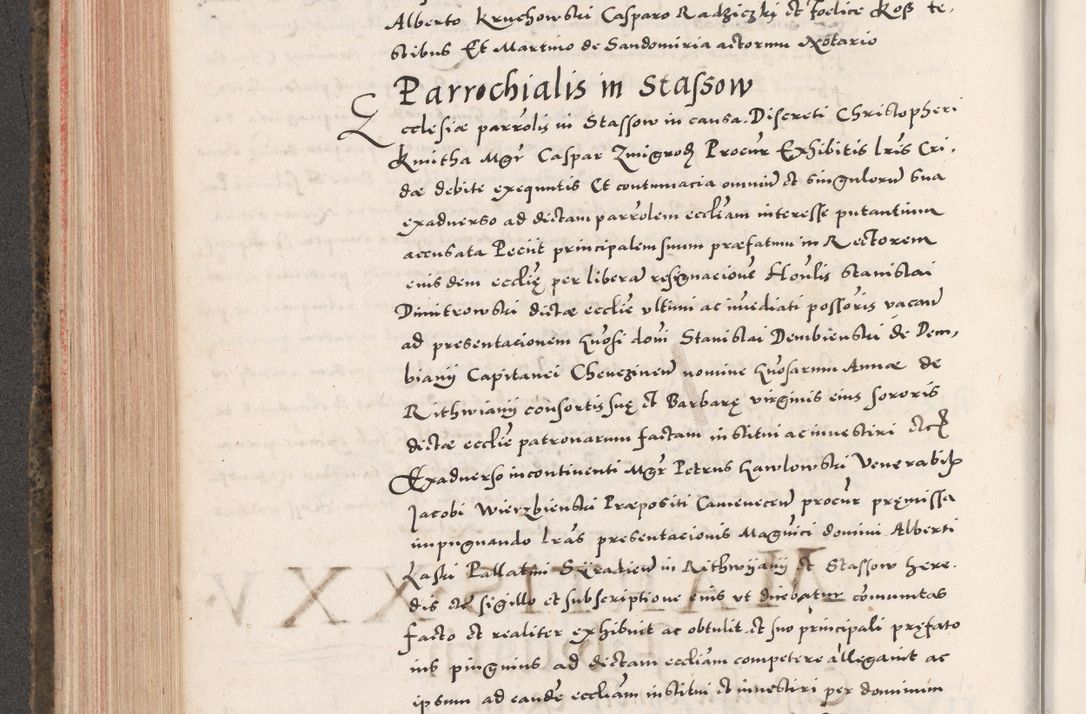 Alberto Kruchowski Casparo Radziczki et Foelice Kosz te,
stibus Et Martino de Sandomiria actormu Notario
Parrochialis in Stassow
Ecclesiæ parrolis in Stassow in causa. Discreti Christopheri
Kmitha Mgr Caspar Zmigrod Procur Exhibitis lris Cri,
dæ debite exequutis Et contumacia omniu et singuloru sua
exadverso ad dictam parrolem eccliam interesse putantium
accusata Peciit principalem suum præfatum in Rectorem
eiusdem eccliæ per libera resignacione Honlis Stanislai
Dimitrowski dictæ ecclie ultimi ac imediati possoris vacan
ad presentacionem Gnosi doni Stanislai Dembienski de Dem,
bianÿ Capitanei Checzinen nomine Gnosarum Annæ de
Rithwianÿ consortis suę et Barbarę virginis eius sororis
dictæ ecclie patronarum factam institui ac investiri etc
Exadverso incontinenti Mgr Petrus Gawlowski Venerabil
Jacobi Wierzbienski Præpositi Camenecen procur pręmissa
impugnando lras presentacionis Magnici domini Alberti
Laski Pallatini Syradien in Rithwÿanÿ et Stassow here,
dis etc sigillo et subscriptione eius ut dicebatur comunitas
facto et realiter exhibuit ac obtulit et suo principali pręfato
ius pinguius ad dictam eccliam competere allegavit ac
ipsum ad eande eccliam institui et investiri per dominum